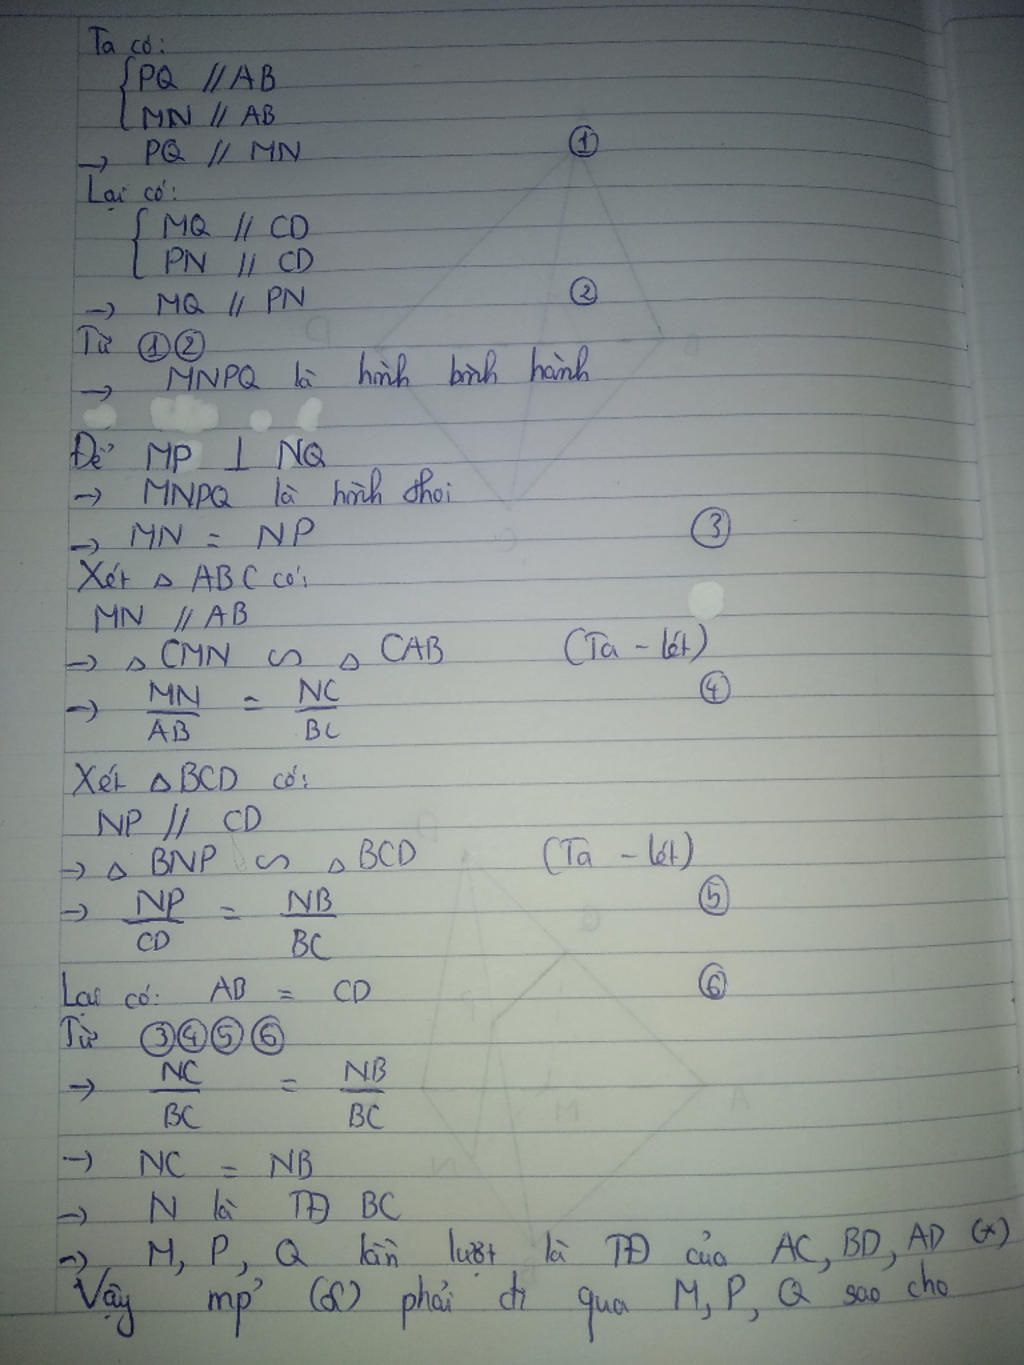 Ta có:
{ PQ // AB
MN // AB
→ PQ // MN ①
Lại có:
{ MQ // CD
PN // CD
→ MQ // PN ②
Từ ①②
→ MNPQ là hình bình hành
Để MP ⊥ NQ
→ MNPQ là hình thoi
→ MN = NP ③
Xét △ ABC có:
MN // AB
→ △ CMN ∽ △ CAB (Ta - lét)
→ MN/AB = NC/BC ④
Xét △ BCD có:
NP // CD
→ △ BNP ∽ △ BCD (Ta - lét)
→ NP/CD = NB/BC ⑤
Lại có: AB = CD ⑥
Từ ③④⑤⑥
→ NC/BC = NB/BC
→ NC = NB
→ N là TĐ BC
→ M, P, Q lần lượt là TĐ của AC, BD, AD (*)
Vậy mp' (α) phải đi qua M, P, Q sao cho